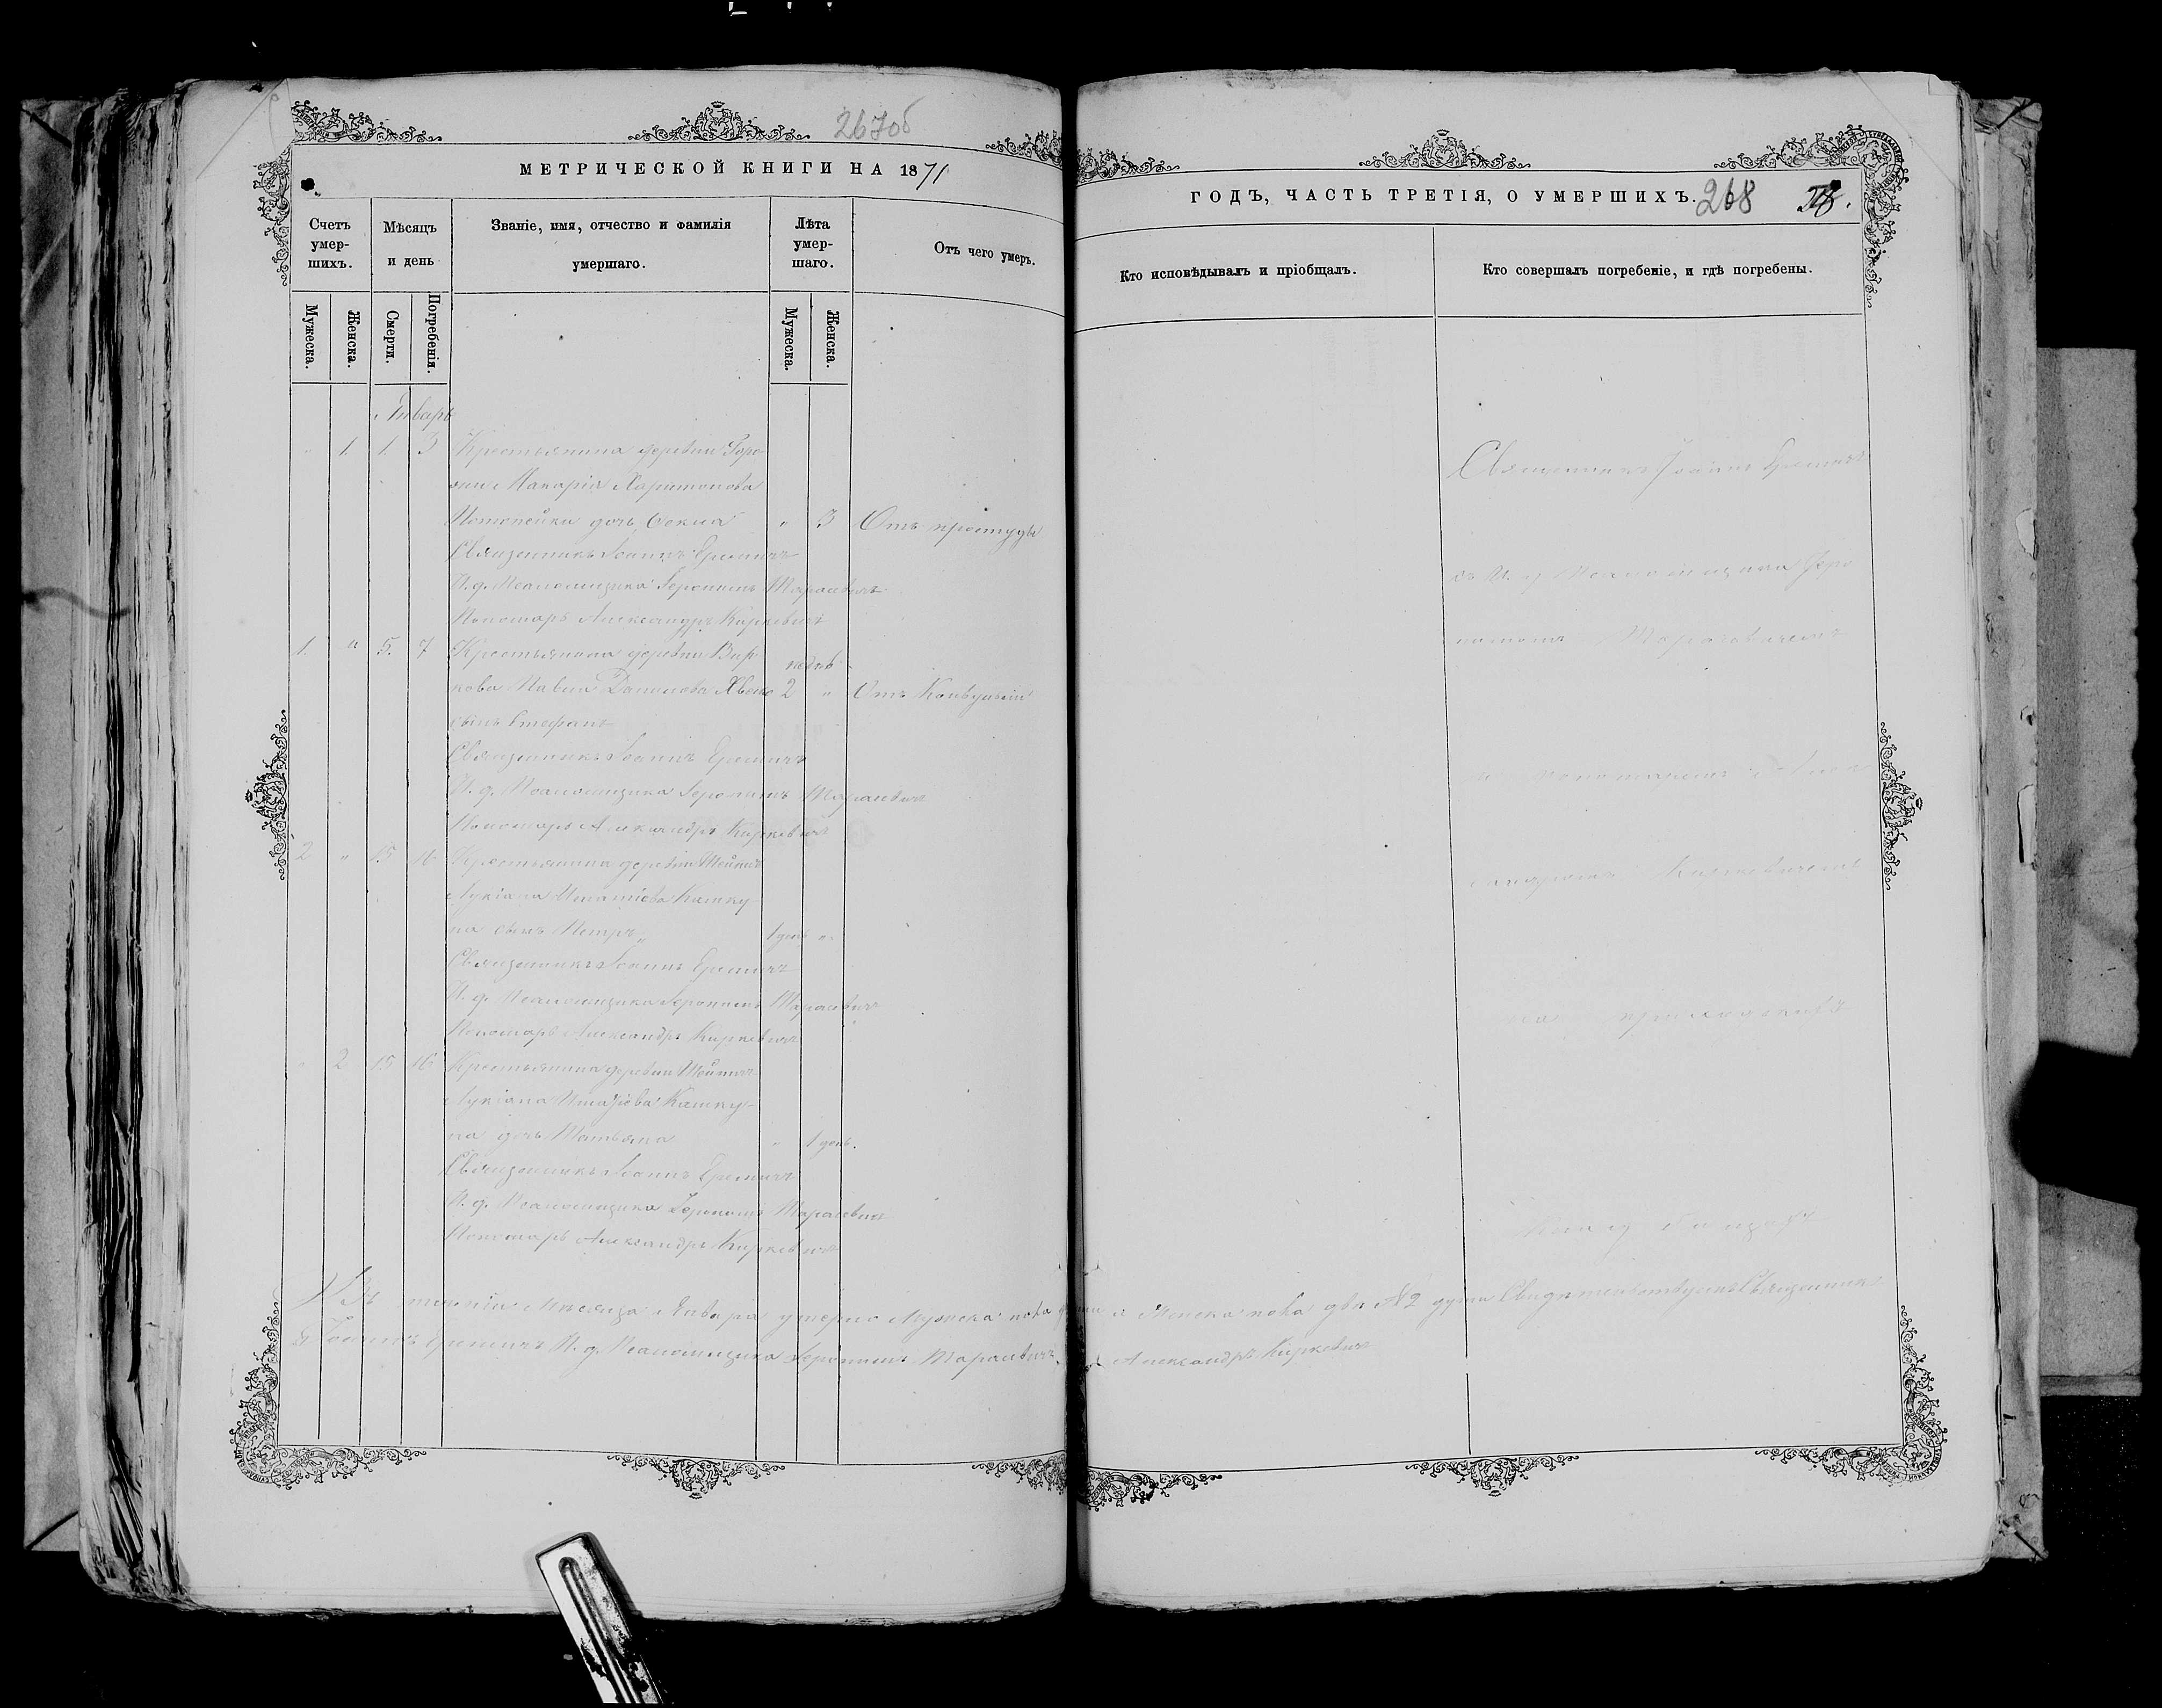 267об
МЕТРИЧЕСКОЙ КНИГИ НА 1871
Счетъ умер-шихъ.
Мѣсяцъ и день
Званіе, имя, отчество и фамилія умершаго.
Лѣта умер-шаго.
Отъ чего умеръ.
Мужеска.
Женска.
Смерти.
Погребенія.
Мужеска.
Женска.
Январь
" 1 1. 3 Крестьянина деревни
Макарія Харитонова
дочь " 3 Отъ простуды
Священникъ Іоаннъ Еремичъ
И. д. Псаломщика Іеронимъ Тарасевичъ
Пономарь Александръ Киркевичъ
1. " 5. 7 Крестьянина деревни
Павла Данилова недѣл 2 " Отъ Конвульсій
сынъ Стефанъ
Священникъ Іоаннъ Еремичъ
И. д. Псаломщика Іеронимъ Тарасевичъ
Пономарь Александръ Киркевичъ
2 " 15 16 Крестьянина деревни
Лукіана Игнатіева
на сынъ Петръ 1 день "
Священникъ Іоаннъ Еремичъ
И. д. Псаломщика Іеронимъ Тарасевичъ
Пономарь Александръ Киркевичъ
" 2 15 16 Крестьянина деревни
Лукіана Игнатіева
на дочь Татьяна " 1 день.
Священникъ Іоаннъ Еремичъ
И. д. Псаломщика Іеронимъ Тарасевичъ
Пономарь Александръ Киркевичъ
Въ теченіи мѣсяца Января умерло Мужеска пола два и Женска пола двѣ 2 души Священникъ
Іоаннъ Еремичъ И. д. Псаломщика Іеронимъ Тарасевичъ Александръ Киркевичъ
ГОДЪ, ЧАСТЬ ТРЕТІЯ, О УМЕРШИХЪ. 268
Кто исповѣдывалъ и пріобщалъ.
Кто совершалъ погребеніе, и гдѣ погребены.
Священникъ Іоаннъ Еремичъ
съ И. д. Псаломщика Іеро
нимомъ Тарасевичемъ
и Пономаремъ Алек
сандромъ Киркевичемъ
на приходскомъ
кладбищѣ